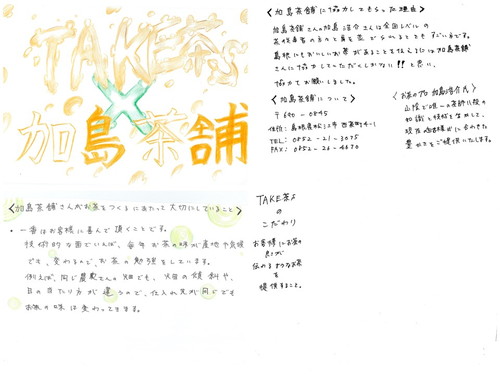 TAKE茶s
×
加島茶舗
<加島茶舗さんがお茶をつくるにあたって大切にしていること>
・一番はお客様に喜んで頂くことです。
技術的な面でいえば、毎年お茶の味が産地や気候
でも、変わるので、お茶の勉強をしています。
例えば、同じ農家さんの畑でも、畑の傾斜や、
日の当たり方が違うので、仕入れ先が同じでも
お茶の味は変わってきます。
<加島茶舗に協力してもらった理由>
加島茶舗さんの加島 さんは全国レベルの
茶
島根にもおいしいお茶があることを には加島茶舗
さんに協力していただくしかない!!と思い、
協力をお願いしました。
<加島茶舗について>
〒690-0845
住所:島根県松江市西茶町4-1
TEL:0852-21-3075
FAX:0852-26-4670
山陰で唯一の茶師 段の
知識と技術を生かして、
現在お客様 に合わせた
豊かさをご提供いたします。
TAKE茶s
の
こだわり
お客様にお茶の
良さが
伝わるようなお茶
を
提供すること。